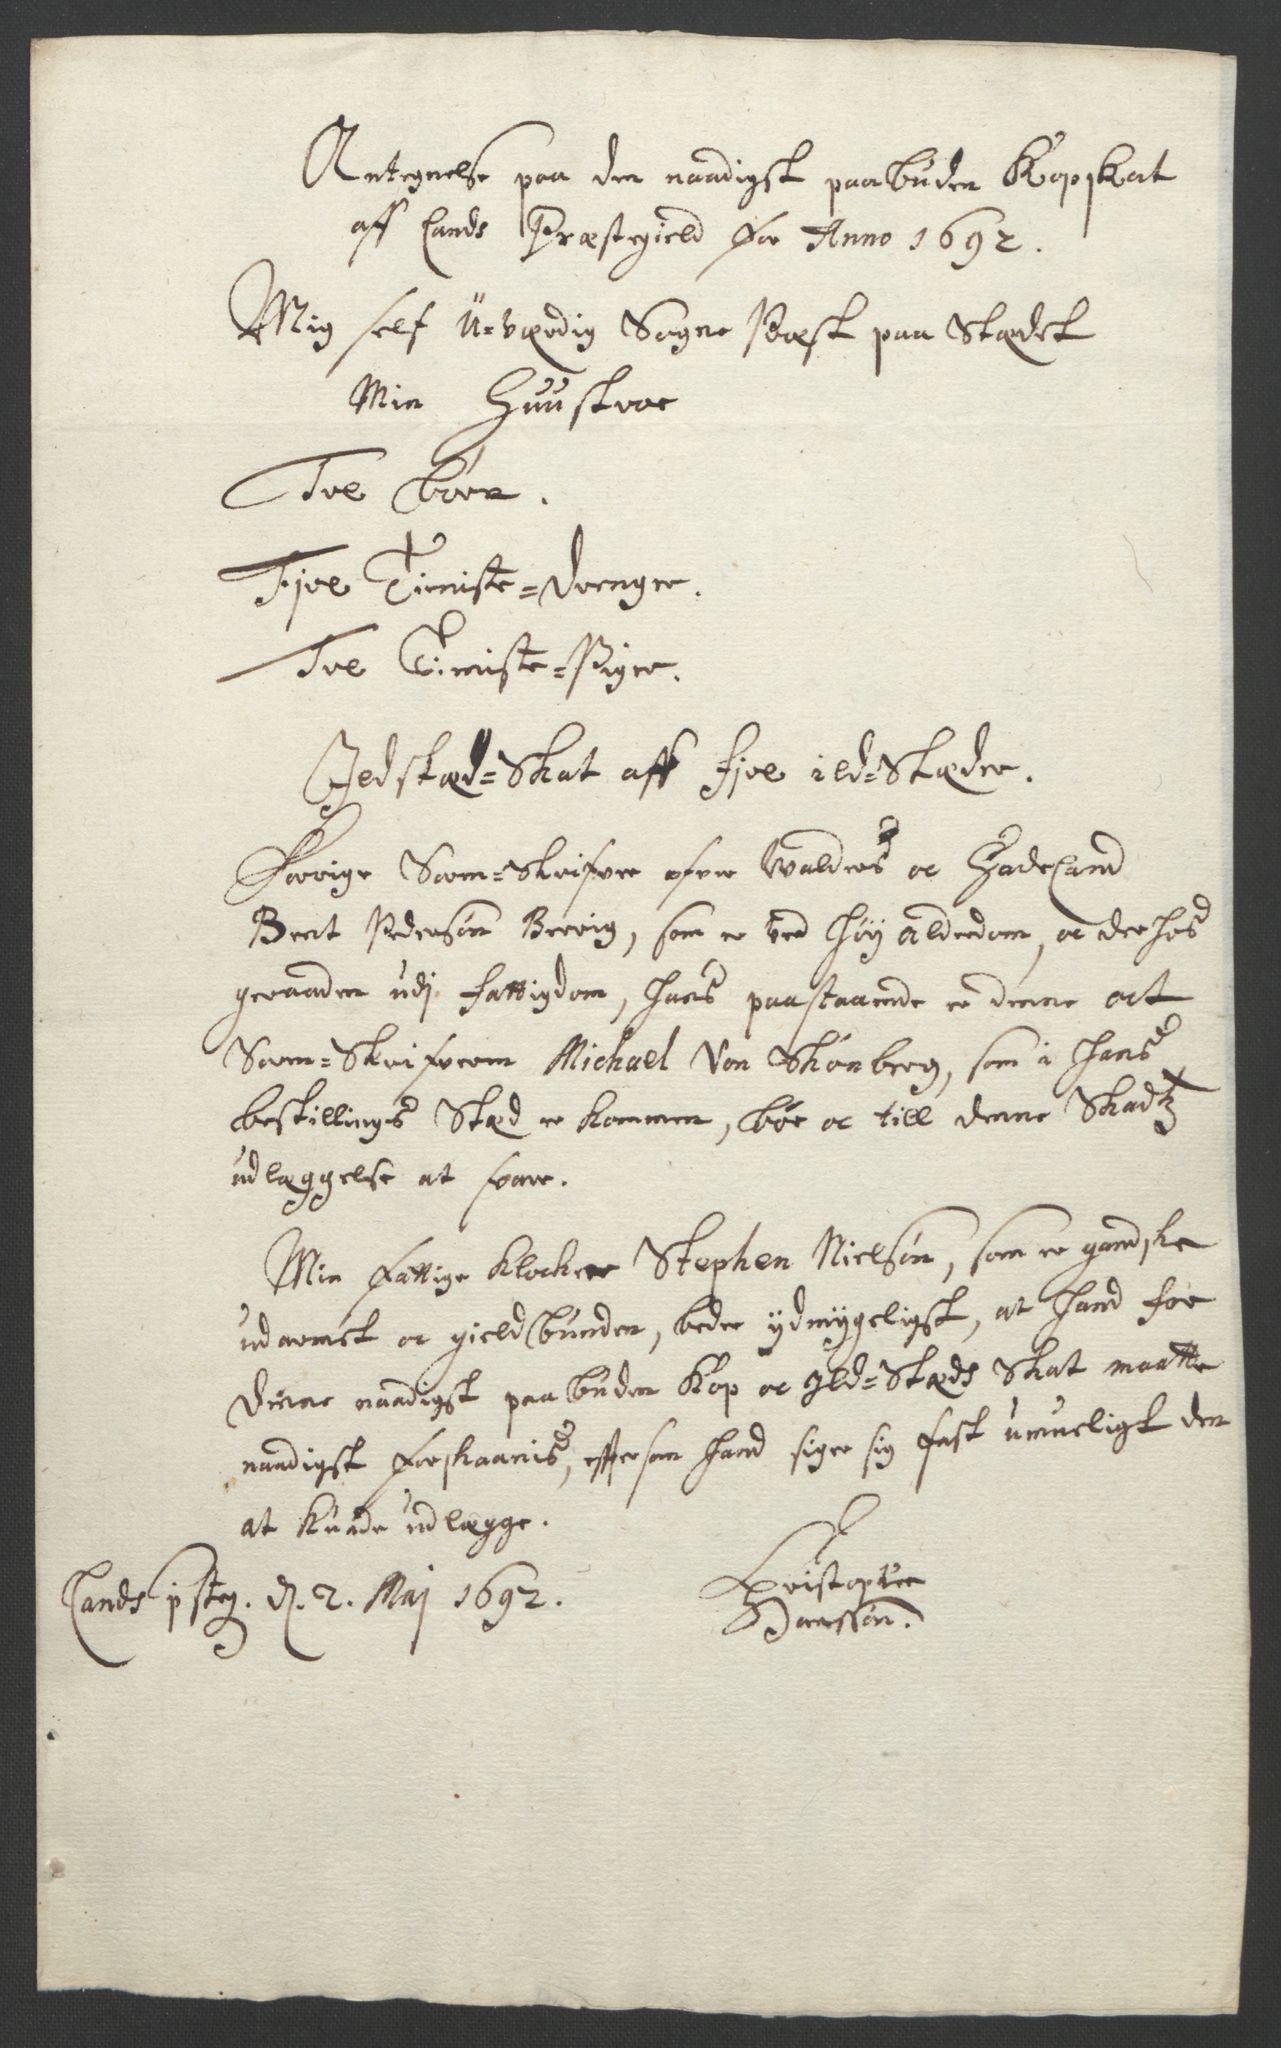 Antegnelse paa den naadigst paabuden Kopskat
aff Lands Præstegield for Anno 1692.
Mig self U-værdig Sogne Præst paa Stædet
Min Huustroe
Toe Børn.
Fire Tieniste-drenger.
Toe Tieniste-Piger.
Ildstæd-Skat aff fire ild-Stæder.
Forige Soren-Skrifver ofver Valders oc Hadeland
Bent Pedersøn Brevig, som er ved høy alderdom, oc der hos
geraaden udj fattigdom, hans paastaaende er denne at
Soren-Skrifveren Michael Von Skønberg, som i hans
bestillings Stæd er kommen, bør oc till denne Skadtz
udlæggelse at svare.
Min fattige Klocker Stephen Nielsøn, som er gandske
udarmet oc gieldbunden, beder ydmygeligst, at hand for
denne naadigst paabuden Kop oc Ild-Stæds Skat maatte
naadigst forskaanis, effter som hand siger sig fast umueligt den
at kunde udlægge.
Lands psteg. d. 2. Maj 1692.
Christopher